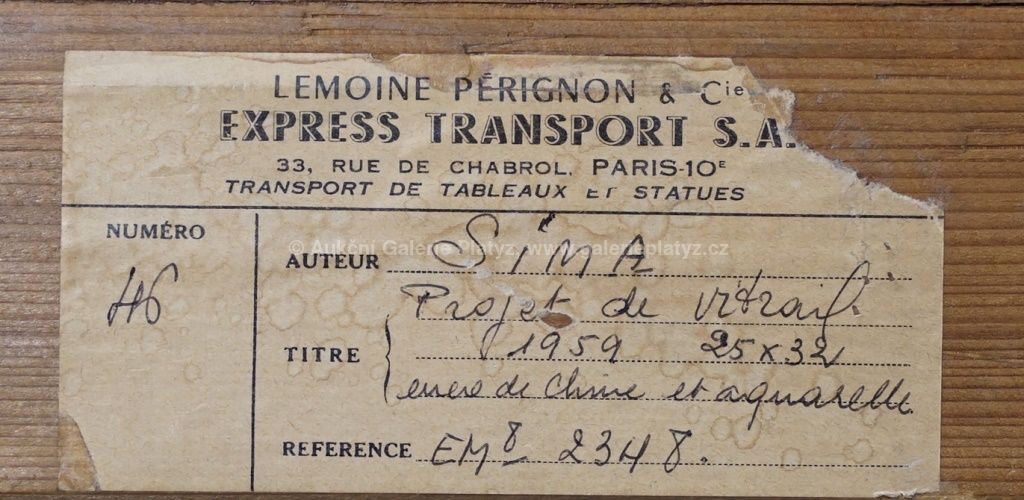 LEMOINE PÉRIGNON & Cie
EXPRESS TRANSPORT S.A.
33, RUE DE CHABROL. PARIS-10E
TRANSPORT DE TABLEAUX ET STATUES
NUMÉRO
46
© Aukční Galerie Platýz, www.galerieplatyz.cz
AUTEUR SiMA
Projet de vitrail.
TITRE 1959 25 x 32
encre de Chine et aquarelle
REFERENCE EM8 2348.